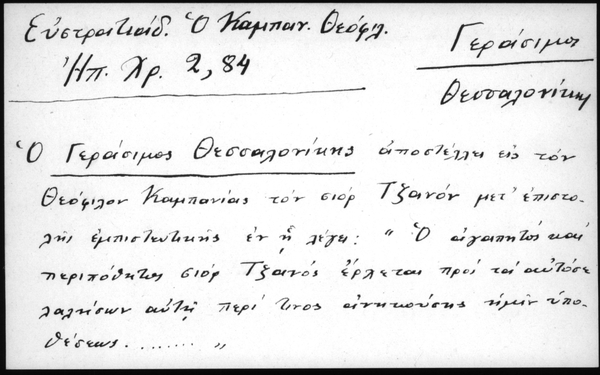 Εὐστρατιάδ. Ὁ Καμπαν. Θεόφιλ.
Ἠπ. Χρ. 2, 84
Γεράσιμος
Θεσσαλονίκης
Ὁ Γεράσιμος Θεσσαλονίκης ἀποστέλλει εἰς τὸν
Θεόφιλον Καμπανίας τὸν σιὸρ Τζανὸν μετ' ἐπιστο-
λῆς ἐμπιστευτικῆς ἐν ᾗ λέγει: " Ὁ ἀγαπητὸς καὶ
περιπόθητος σιὸρ Τζανὸς ἔρχεται πρὸς τὰ αὐτόσε
λαλήσων αὐτῇ περί τινος ἀνηκούσης ἡμῖν ὑπο-
θέσεως ........ "